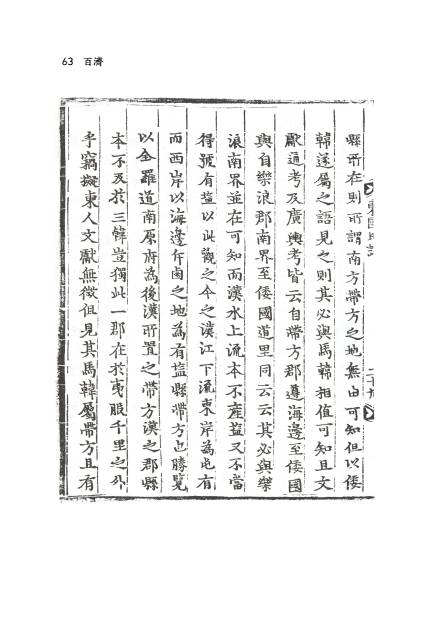 63 百濟
縣所在則所謂南方帶方之地無由可知但以倭
韓遂屬之語見之則其必與馬韓相値可知且文
獻通考及廣輿考皆云自帶方郡遵海邊至倭國
與自樂浪郡南界至倭國道里同云云其必與樂
浪南界並在可知而漢水上流本不産塩又不當
得號有塩以此觀之今之漢江下流東岸爲
有
而西岸以海邊斥鹵之地爲有塩縣帶方也勝覽
以全羅道南原府爲後漢所置之帶方漢之郡縣
本不及於三韓豈獨此一郡在於夷服千里之外
乎竊擬東人文獻無徵但見其馬韓屬帶方且有